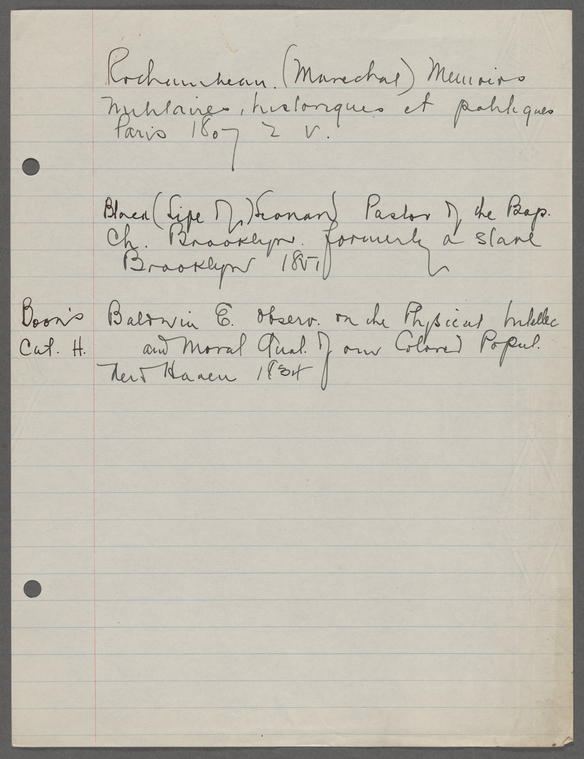 Rochambeau. (Marechal) Memoirs
Militaires, historiques et politiques
Paris 1807 2 v.
Black (Life of,) Leonard Pastor of the Bap.
Ch. Brooklyn. formerly a slave
Brooklyn 1851
Boon's Baldwin E. Observ. on the Physical Intellec
Cat. H. and Moral Qual. of our Colored Popul.
New Haven 1834